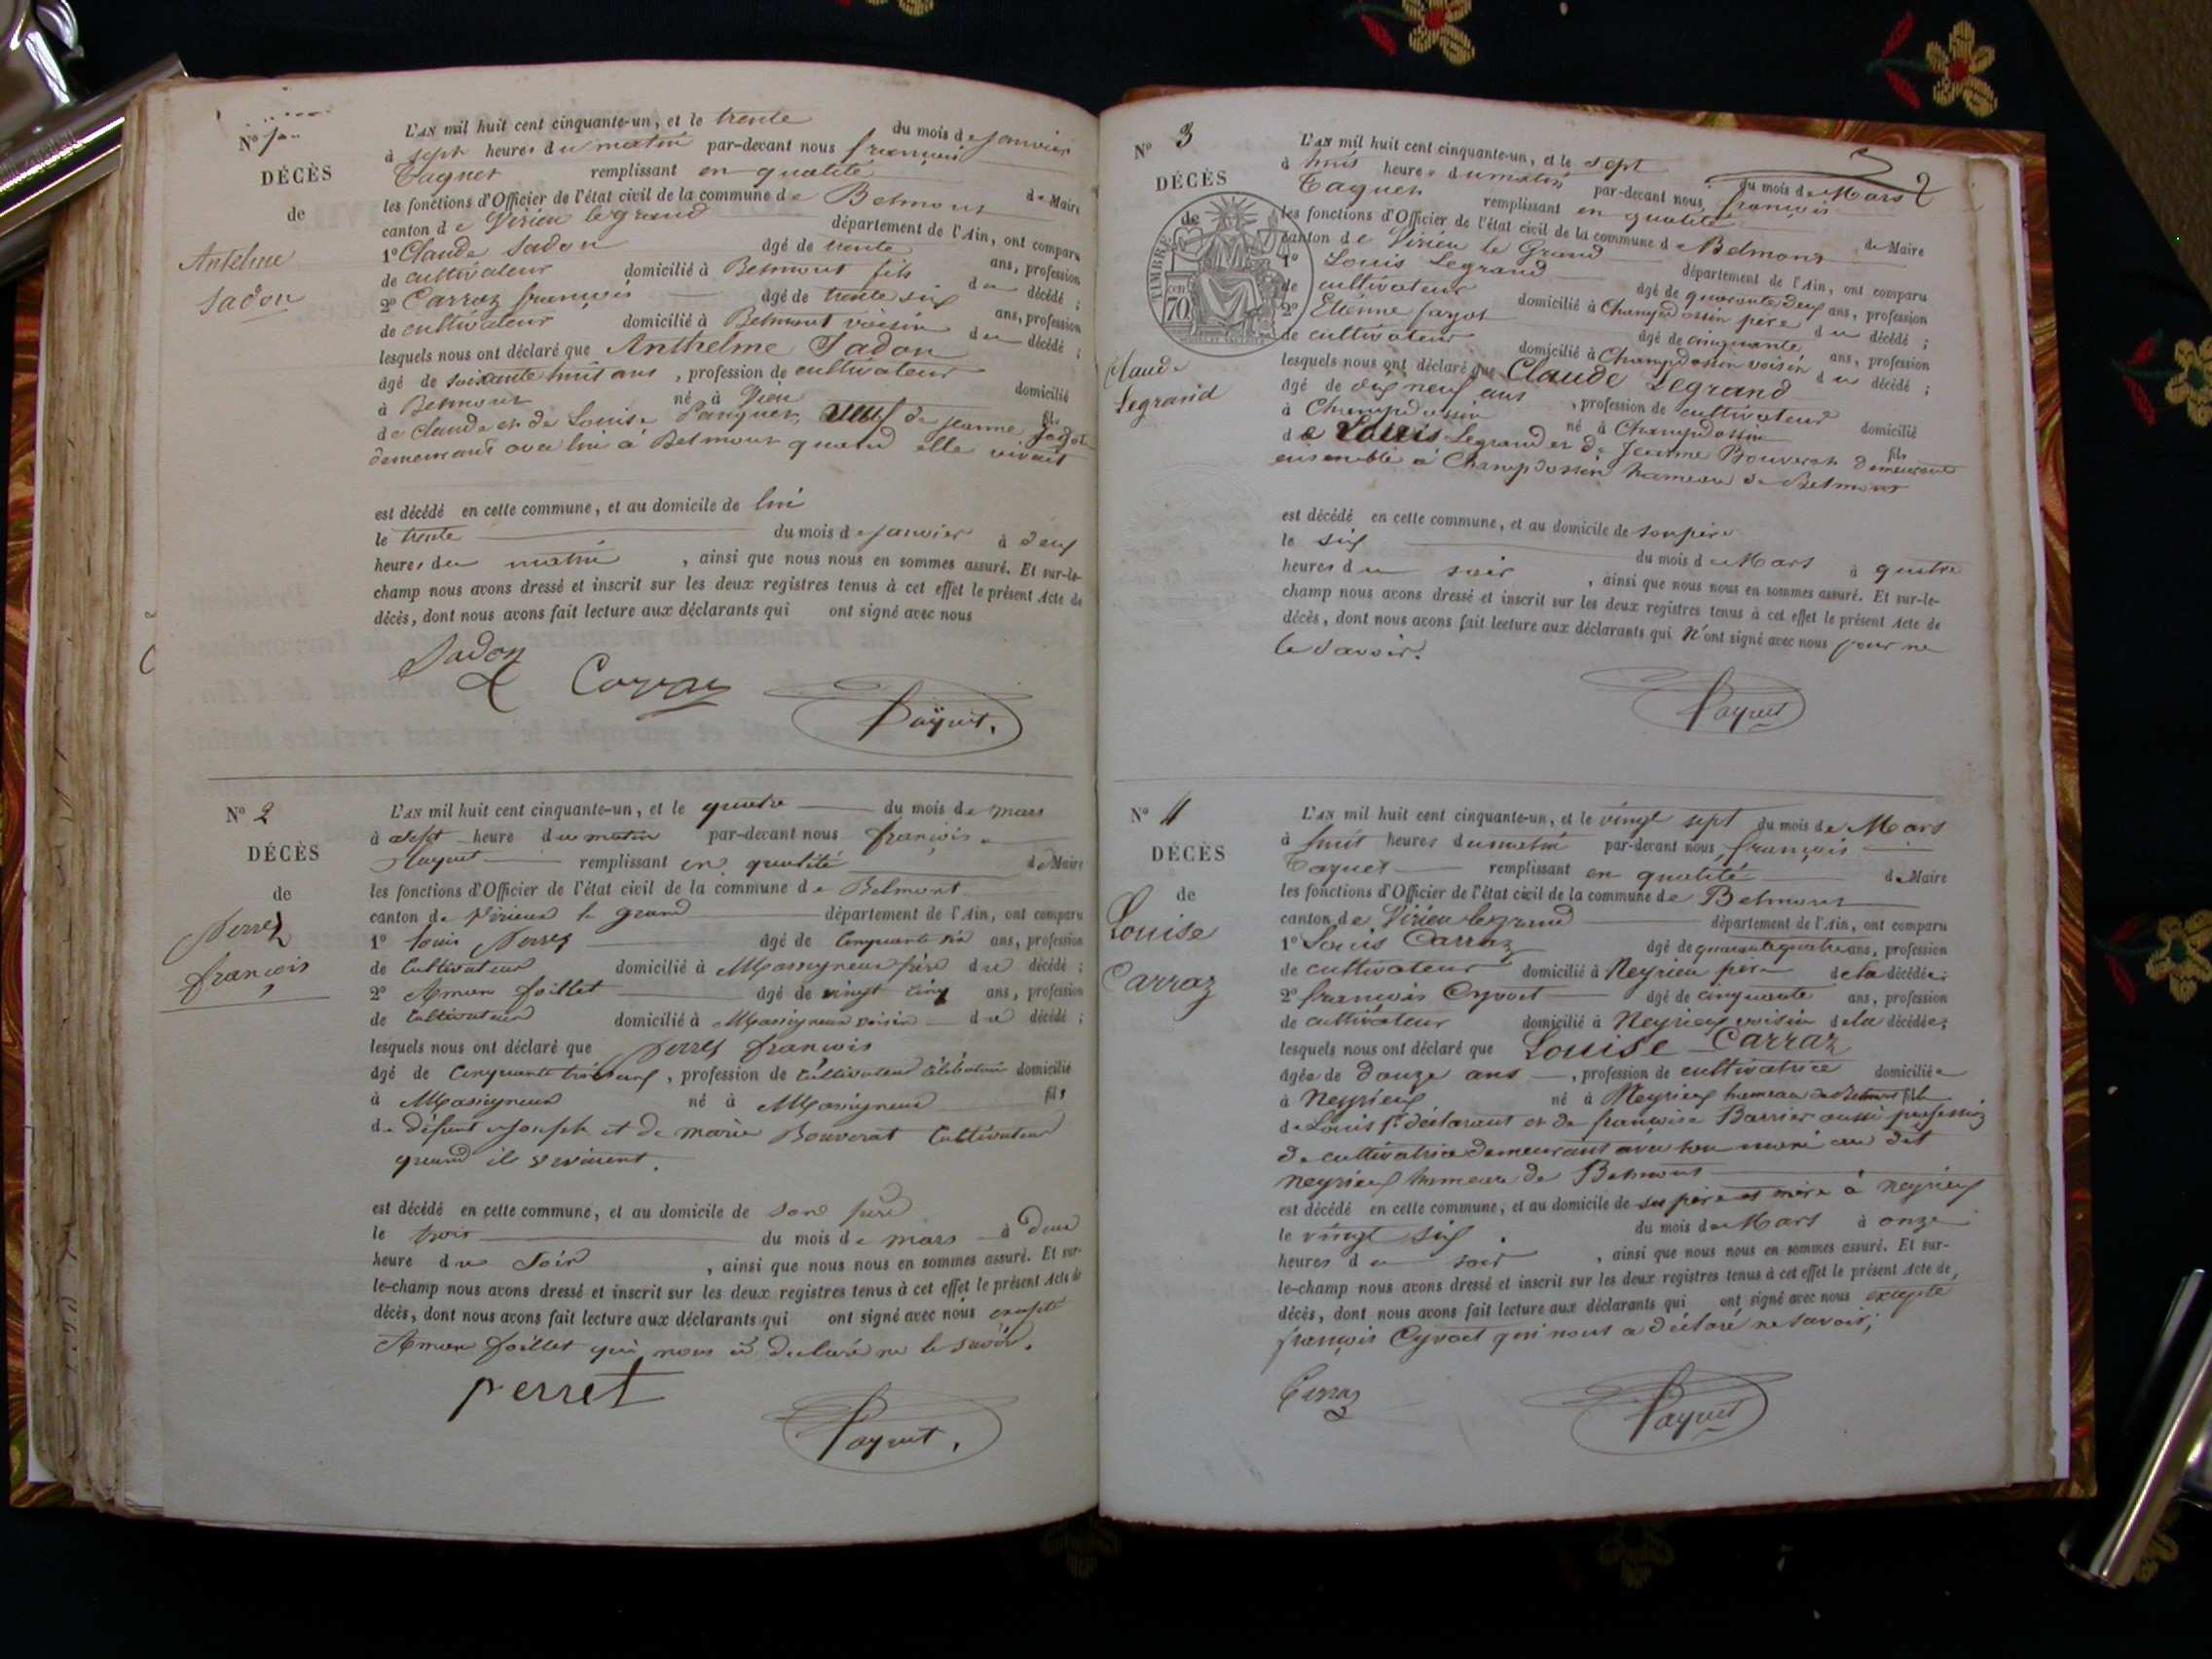 N° 1er
DÉCÈS
de
Antelme
Jadon
L'AN mil huit cent cinquante-un, et le trente du mois de janvier
à sept heures du matin par-devant nous françois
remplissant en qualité de Maire
les fonctions d'Officier de l'état civil de la commune de Belmont
canton de Virieu le grand département de l'Ain, ont comparu
1° Claude Jadon âgé de trente ans, profession
de cultivateur domicilié à Belmont fils du décédé ;
2° Carraz françois âgé de trente six ans, profession
de cultivateur domicilié à Belmont voisin du décédé ;
lesquels nous ont déclaré que Anthelme Jadon
âgé de soixante huit ans, profession de cultivateur domicilié
à Belmont né à Vieu fils
de Claude et de Louise veuf de jeanne
demeurant avec lui à Belmont quand elle vivait
est décédé en cette commune, et au domicile de lui
le trente du mois de janvier à deux
heures du matin, ainsi que nous nous en sommes assuré. Et sur-le-
champ nous avons dressé et inscrit sur les deux registres tenus à cet effet le présent Acte de
décès, dont nous avons fait lecture aux déclarants qui ont signé avec nous
Jadon Carraz
N° 2
DÉCÈS
de
Perret
françois
L'AN mil huit cent cinquante-un, et le quatre du mois de mars
à sept heure du matin par-devant nous françois
remplissant en qualité de Maire
les fonctions d'Officier de l'état civil de la commune de Belmont
canton de Virieu le grand département de l'Ain, ont comparu
1° Louis Perret âgé de Cinquante six ans, profession
de Cultivateur domicilié à Massigneux frère du décédé ;
2° Amon Joillet âgé de vingt cinq ans, profession
de Cultivateur domicilié à Massigneux voisin du décédé ;
lesquels nous ont déclaré que Perret françois
âgé de Cinquante, profession de Cultivateur Célibataire domicilié
à Massigneux né à Massigneux fils
de défunt Joseph et de marie Bouverat Cultivateur
quand ils vivaient.
est décédé en cette commune, et au domicile de son frère
le trois du mois de mars à Deux
heure du Soir, ainsi que nous nous en sommes assuré. Et sur-
le-champ nous avons dressé et inscrit sur les deux registres tenus à cet effet le présent Acte de
décès, dont nous avons fait lecture aux déclarants qui ont signé avec nous excepté
Amon Joillet qui nous a déclaré ne le savoir.
perret
2
N° 3
DÉCÈS
de
TIMBRE
70
Claude
Legrand
L'AN mil huit cent cinquante-un, et le sept du mois de Mars
à huit heures du matin par-devant nous françois
remplissant en qualité de Maire
les fonctions d'Officier de l'état civil de la commune de Belmont
canton de Virieu le Grand département de l'Ain, ont comparu
1° Louis Legrand âgé de quarante deux ans, profession
de cultivateur domicilié à Champdossin père du décédé ;
2° Etienne âgé de cinquante ans, profession
de cultivateur domicilié à Champdossin voisin du décédé ;
lesquels nous ont déclaré que Claude Legrand
âgé de dix neuf ans, profession de cultivateur domicilié
à Champdossin né à Champdossin fils
de Louis Legrand et de Jeanne Bouverat demeurant
ensemble à Champdossin hameau de Belmont
est décédé en cette commune, et au domicile de son père
le six du mois de Mars à quatre
heures du soir, ainsi que nous nous en sommes assuré. Et sur-le-
champ nous avons dressé et inscrit sur les deux registres tenus à cet effet le présent Acte de
décès, dont nous avons fait lecture aux déclarants qui N'ont signé avec nous pour ne
le savoir.
N° 4
DÉCÈS
de
Louise
Carraz
L'AN mil huit cent cinquante-un, et le vingt sept du mois de Mars
à huit heures du matin par-devant nous françois
remplissant en qualité de Maire
les fonctions d'Officier de l'état civil de la commune de Belmont
canton de Virieu le grand département de l'Ain, ont comparu
1° Louis Carraz âgé de quarante quatre ans, profession
de cultivateur domicilié à Neyrieu père de la décédée ;
2° françois Cyvoct âgé de cinquante ans, profession
de cultivateur domicilié à Neyrieux voisin de la décédée ;
lesquels nous ont déclaré que Louise Carraz
âgée de douze ans, profession de cultivatrice domiciliée
à Neyrieux né à Neyrieux hameau de Belmont fille
de Louis 1er déclarant et de françoise Barrier aussi profession
de cultivatrice demeurant avec son mari au dit
Neyrieux hameau de Belmont
est décédé en cette commune, et au domicile de ses père et mère à Neyrieux
le vingt six du mois de Mars à onze
heures du soir, ainsi que nous nous en sommes assuré. Et sur-
le-champ nous avons dressé et inscrit sur les deux registres tenus à cet effet le présent Acte de
décès, dont nous avons fait lecture aux déclarants qui ont signé avec nous excepté
françois Cyvoct qui nous a déclaré ne savoir;